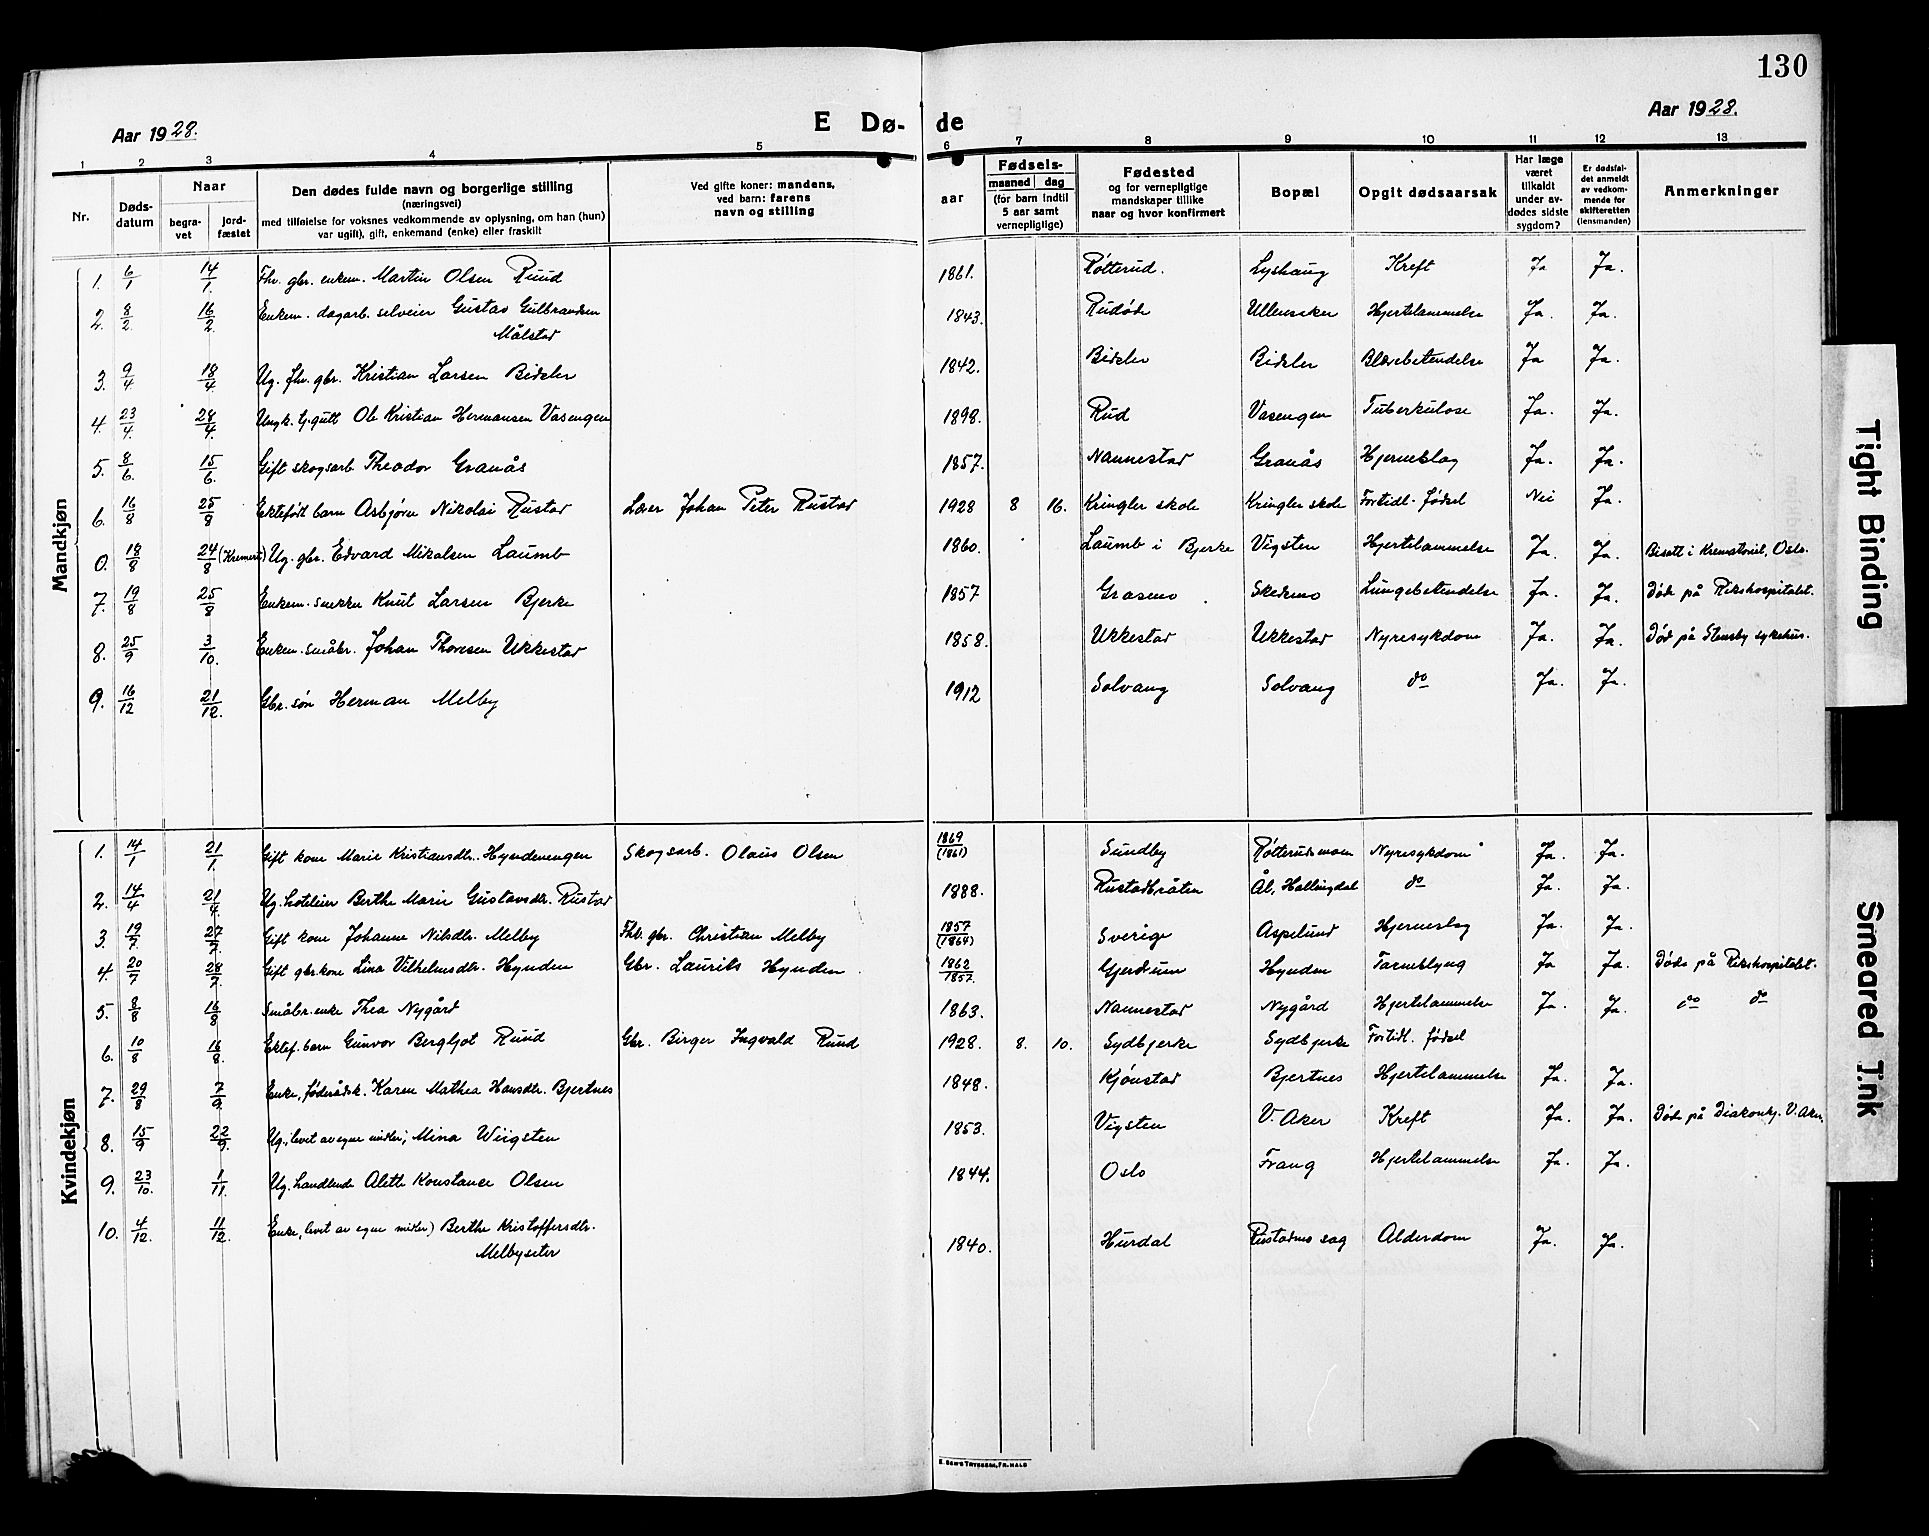 130
Aar 1928.
E Dø- de
Aar 1928.
1 2 3 4 5 6 7 8 9 10 11 12 13
Nr.
Døds-
datum
Naar
begra-
vet
jord-
fæstet
Den dødes fulde navn og borgerlige stilling
(næringsvei)
med tilføielse for voksnes vedkommende av oplysning, om han (hun)
var ugift), gift, enkemand (enke) eller fraskilt
Ved gifte koner: mandens,
ved barn: farens
navn og stilling
aar
Fødsels-
maaned dag
(for barn indtil
5 aar samt
vernepligtige)
Fødested
og for vernepligtige
mandskaper tillike
naar og hvor konfirmert
Bopæl
Opgit dødsaarsak
Har læge
været
tilkaldt
under av-
dødes sidste
sygdom?
Er dødsfal-
det anmeldt
av vedkom-
mende for
skifteretten
(lensmanden)
Anmerkninger
Mandkjøn
1. 6/1 14/1. Fhv. gbr. enkem. Martin Olsen Ruud 1861. Røtterud. Lyshaug Kreft Ja Ja.
2. 8/2 16/2. Enkem. dagarb. selveier Gustav Gulbrandsen 1843. Rudøde Ullensaker Hjertelammelse Ja. Ja.
Målstad
3. 9/4 18/4 Ug. fhv. gbr. Kristian Larsen Bidsler 1842. Bidsler Bidsler Blærebetendelse Ja Ja.
4. 23/4 28/4. Ungk. g.gutt Ole Kristian Hermansen Vasengen 1898. Rud Vasengen Tuberkulose Ja. Ja.
5. 8/6 15/6. Gift skogsarb. Theodor Granås 1857. Nannestad Granås Hjerneslag Ja. Ja.
6. 16/8 25/8 Ektefødt barn Asbjørn Nikolai Rustad Lærer Johan Peter Rustad 1928 8 16. Kringler skole Kringler skole Fortidl. fødsel Nei Ja.
0. 18/8 24/8 (Kremert) Ug. gbr. Edvard Mikalsen Laumb 1860. Laumb i Bjerke Vigsten Hjertelammelse Ja. Ja. Bisatt i Krematoriet, Oslo.
7. 19/8 25/8 Enkem. snekker Knut Larsen Bjerke 1857 Grasmo Skedsmo Lungebetendelse Ja. Ja. Død på Rikshospitalet.
8. 25/9 3/10. Enkem. småbr. Johan Thoresen Ukkestad 1858. Ukkestad Ukkestad Nyresykdom Ja. Ja. Død på Stensby sykehus.
9. 16/12 21/12. Gbr. søn Herman Melby 1912 Solvang Solvang do Ja. Ja.
Kvindekjøn
1. 14/1 21/1. Gift kone Marie Kristiansdtr. Hyndenengen Skogsarb. Olaus Olsen 1869 (1861) Sundby Røtterudsmoen Nyresykdom Ja. Ja.
2. 14/4 21/4. Ug. hoteleier Berthe Marie Gustavsdtr. Rustad 1888. Rustadbråten Ål, Hallingdal do Ja. Ja.
3. 19/7. 27/7 Gift kone Johanne Nilsdtr. Melby Fhv. gbr. Christian Melby 1857 (1864) Sverige Aspelund Hjerneslag Ja. Ja.
4. 20/7 28/7. Gift gbr.kone Lina Vilhelmsdtr. Hynden Gbr. Laurits Hynden. 1862 1857. Gjerdrum Hynden Tarmslyng Ja Ja. Død på Rikshospitalet.
5. 8/8 16/8 Småbr. enke Thea Nygård 1863. Nannestad Nygård Hjertelammelse Ja. Ja. do do
6. 10/8 16/8. Ektef. barn Gunvor Bergljot Ruud Gbr. Birger Ingvald Ruud 1928. 8. 10. Sydbjerke Sydbjerke Fortidl. fødsel
7. 29/8 7/9. Enke, føderådsk. Karen Mathea Hansdtr. Bjertnes 1848. Kjønstad Bjertnes Hjertelammelse Ja. Ja.
8. 15/9 22/9. Ug., levet av egne midler, Mina Wiigsten 1853. Vigsten V. Aker Kreft Ja. Ja. Død på Diakonhj. V. Aker
9. 23/10. 1/11. Ug. handlende Aleth Konstance Olsen 1844. Oslo Frang Hjertelammelse Ja. Ja.
10. 4/12. 11/12. Enke, levet av egne midler) Berthe Kristoffersdtr. 1840. Hurdal Rustadmo sag Alderdom Ja. Ja.
Melbyseter
Tight Binding
Smeared Ink